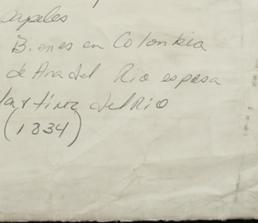 Papeles
Bienes en Colombia
de Ana del Rio esposa
Martinez del Rio
(1834)